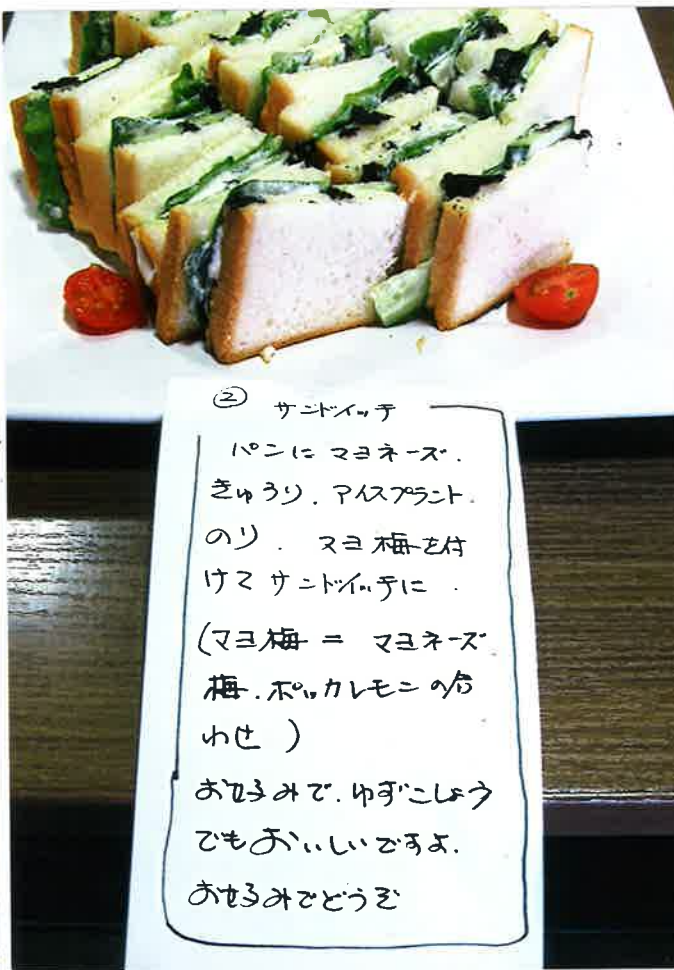 ② サンドイッチ
パンに マヨネーズ.
きゅうり. アイスプラント.
のり. マヨ梅を付
けて サンドイッチに.
(マヨ梅 = マヨネーズ
梅. ポッカレモンの合
わせ )
お好みで. ゆずこしょう
でもおいしいですよ.
お好みでどうぞ